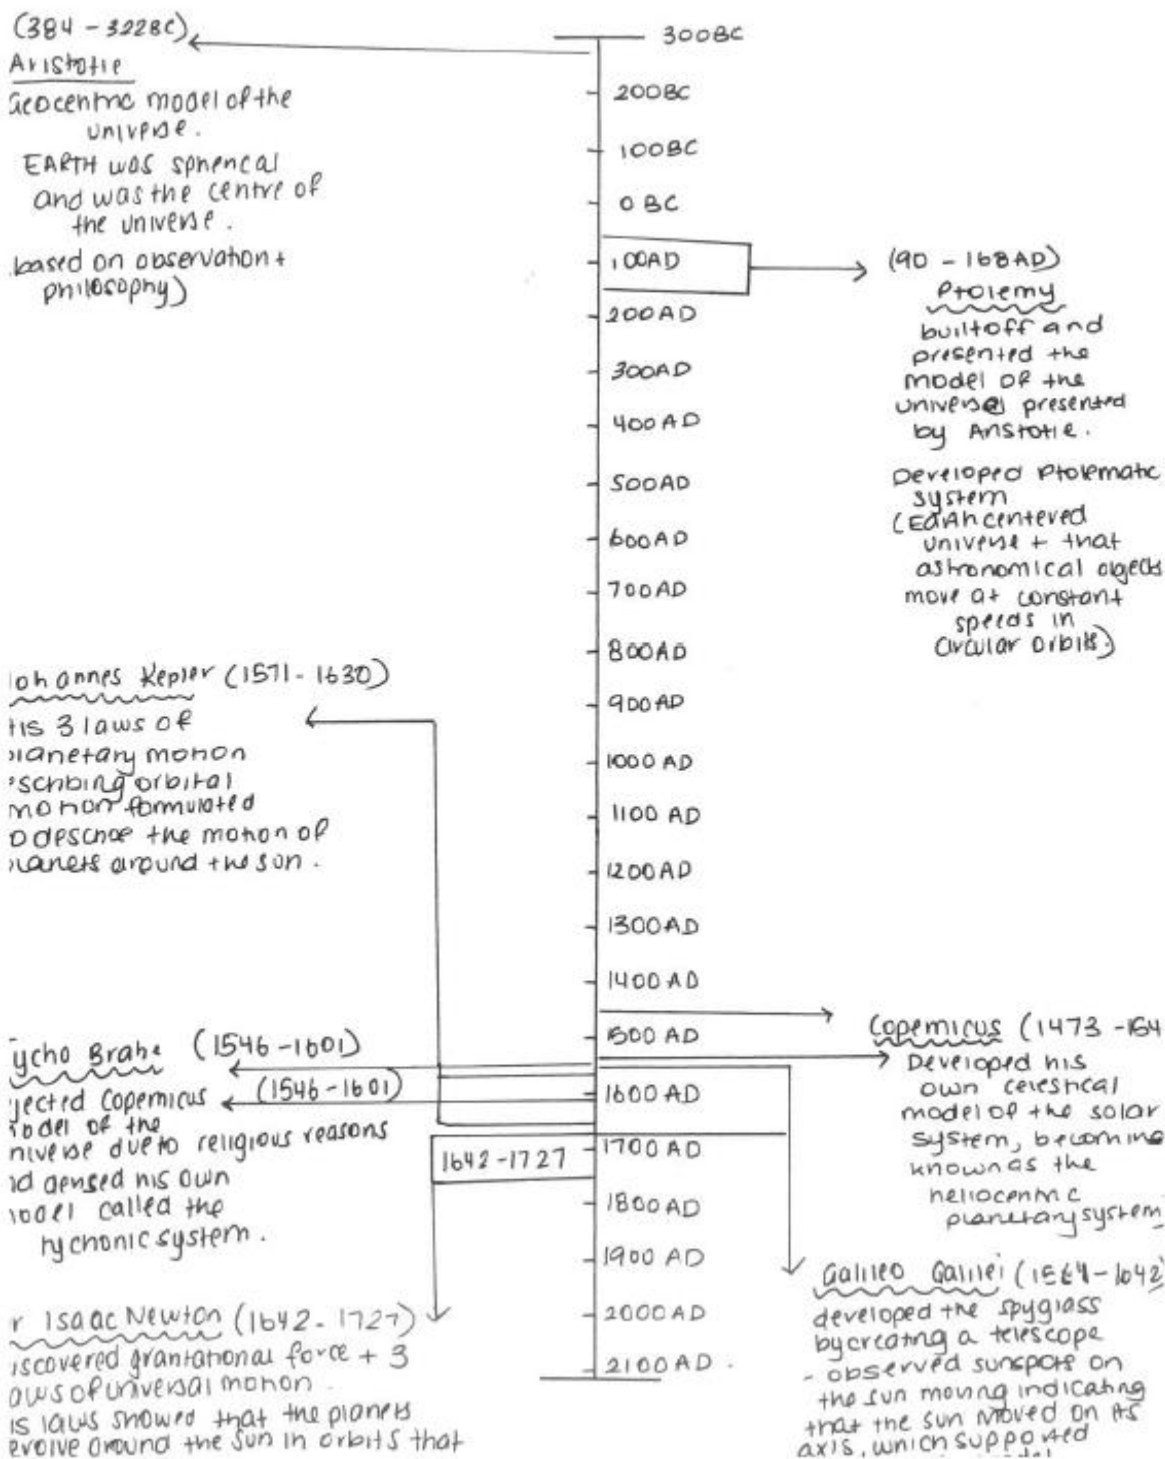 (384 - 322BC)
Aristotle
Geocentric model of the
universe.
EARTH was spherical
and was the centre of
the universe.
based on observation +
philosophy)
300BC
200BC
100BC
0 BC
100AD
200AD
300AD
400AD
500AD
600AD
700AD
800AD
900AD
1000AD
1100AD
1200AD
1300AD
1400AD
1500AD
1600AD
1700AD
1800AD
1900AD
2000AD
2100AD.
(90 - 168AD)
Ptolemy
built off and
presented the
model of the
universe presented
by Aristotle.
Developed Ptolematic
system
(Earth centered
universe + that
astronomical objects
move at constant
speeds in
circular orbits)
Johannes Kepler (1571 - 1630)
His 3 laws of
planetary motion
scribing orbital
motion formulated
o describe the motion of
lanets around the sun.
ycho Brahe (1546 - 1601)
(1546 - 1601)
jected Copernicus
odel of the
niverse due to religious reasons
nd devised his own
model called the
tychonic system.
1642 - 1727
Copernicus (1473 - 154
Developed his
own celestical
model of the solar
system, becoming
known as the
heliocentric
planetary system
Galileo Galilei (1564 - 1642)
developed the spyglass
by creating a telescope
- observed sunspots on
the sun moving indicating
that the sun moved on its
axis, which supported
r Isaac Newton (1642 - 1727)
iscovered gravitational force + 3
aws of universal motion
is laws showed that the planets
evolve around the sun in orbits that